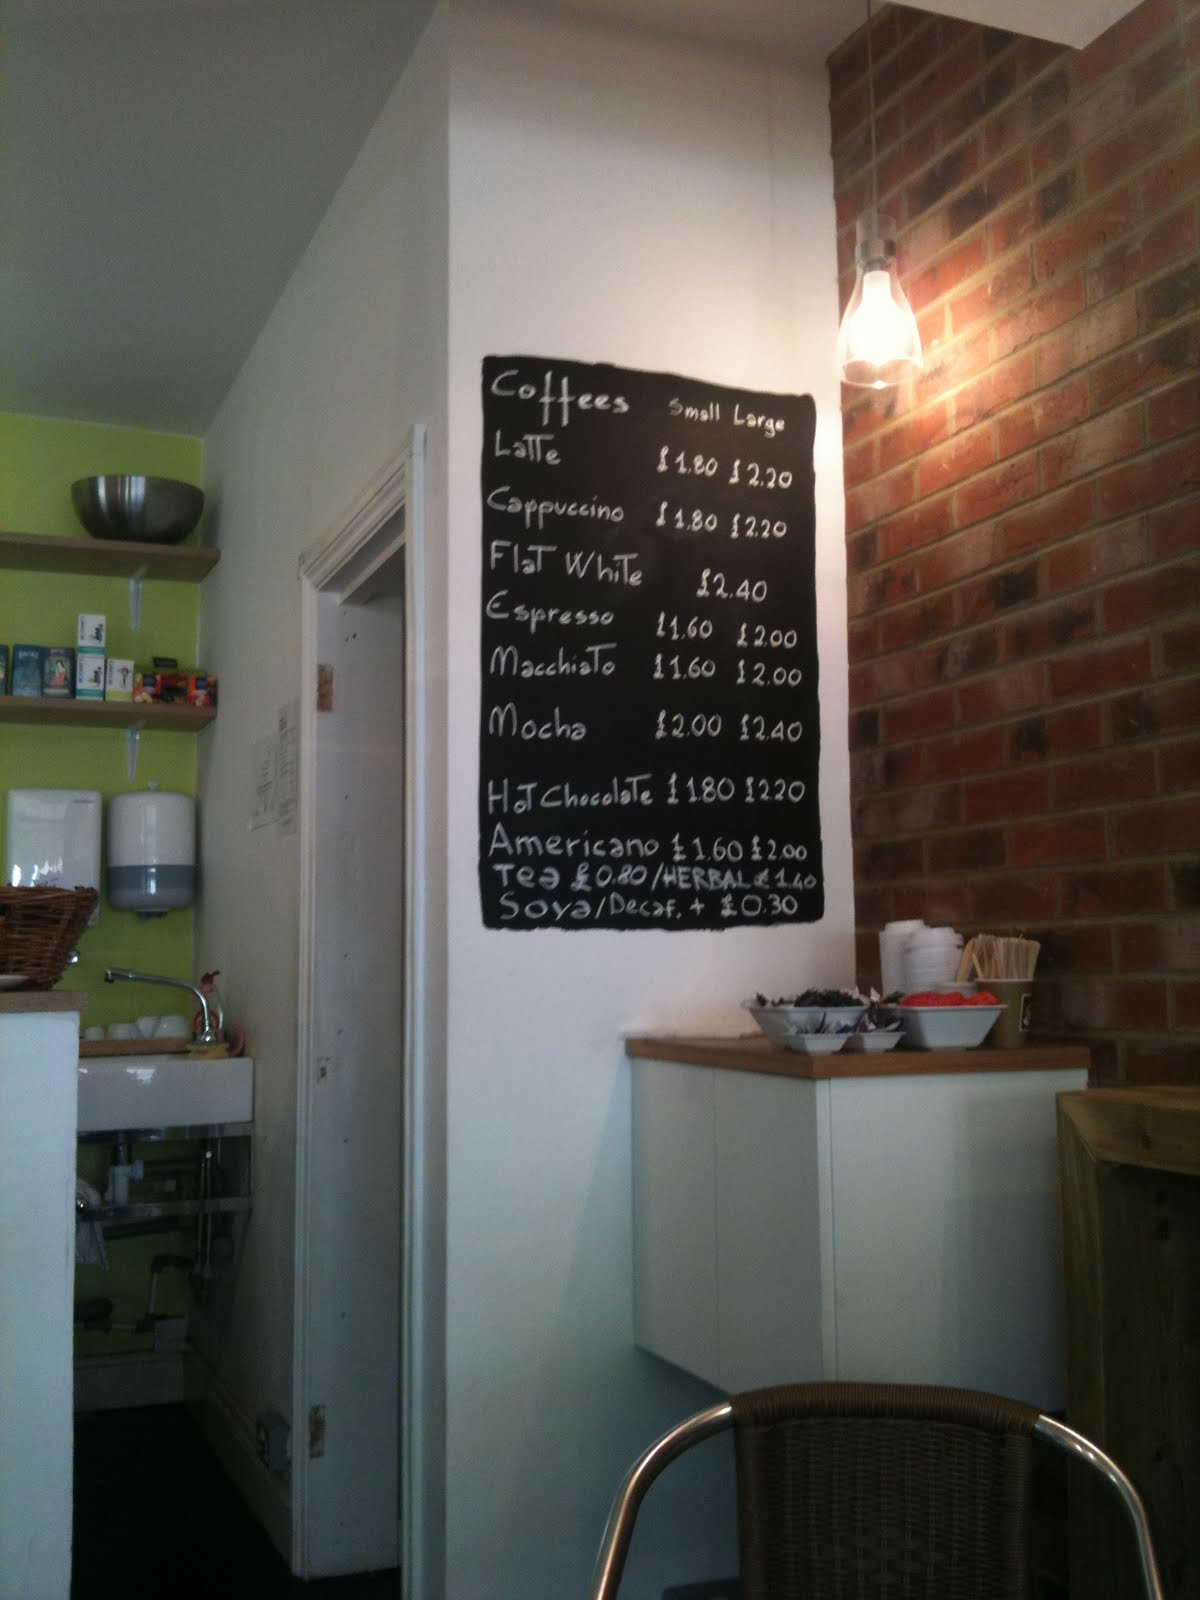 Coffees Small Large
Latte £1.80 £2.20
Cappuccino £1.80 £2.20
Flat White £2.40
Espresso £1.60 £2.00
Macchiato £1.60 £2.00
Mocha £2.00 £2.40
Hot Chocolate £1.80 £2.20
Americano £1.60 £2.00
Tea £0.80/HERBAL £1.40
Soya/Decaf. + £0.30